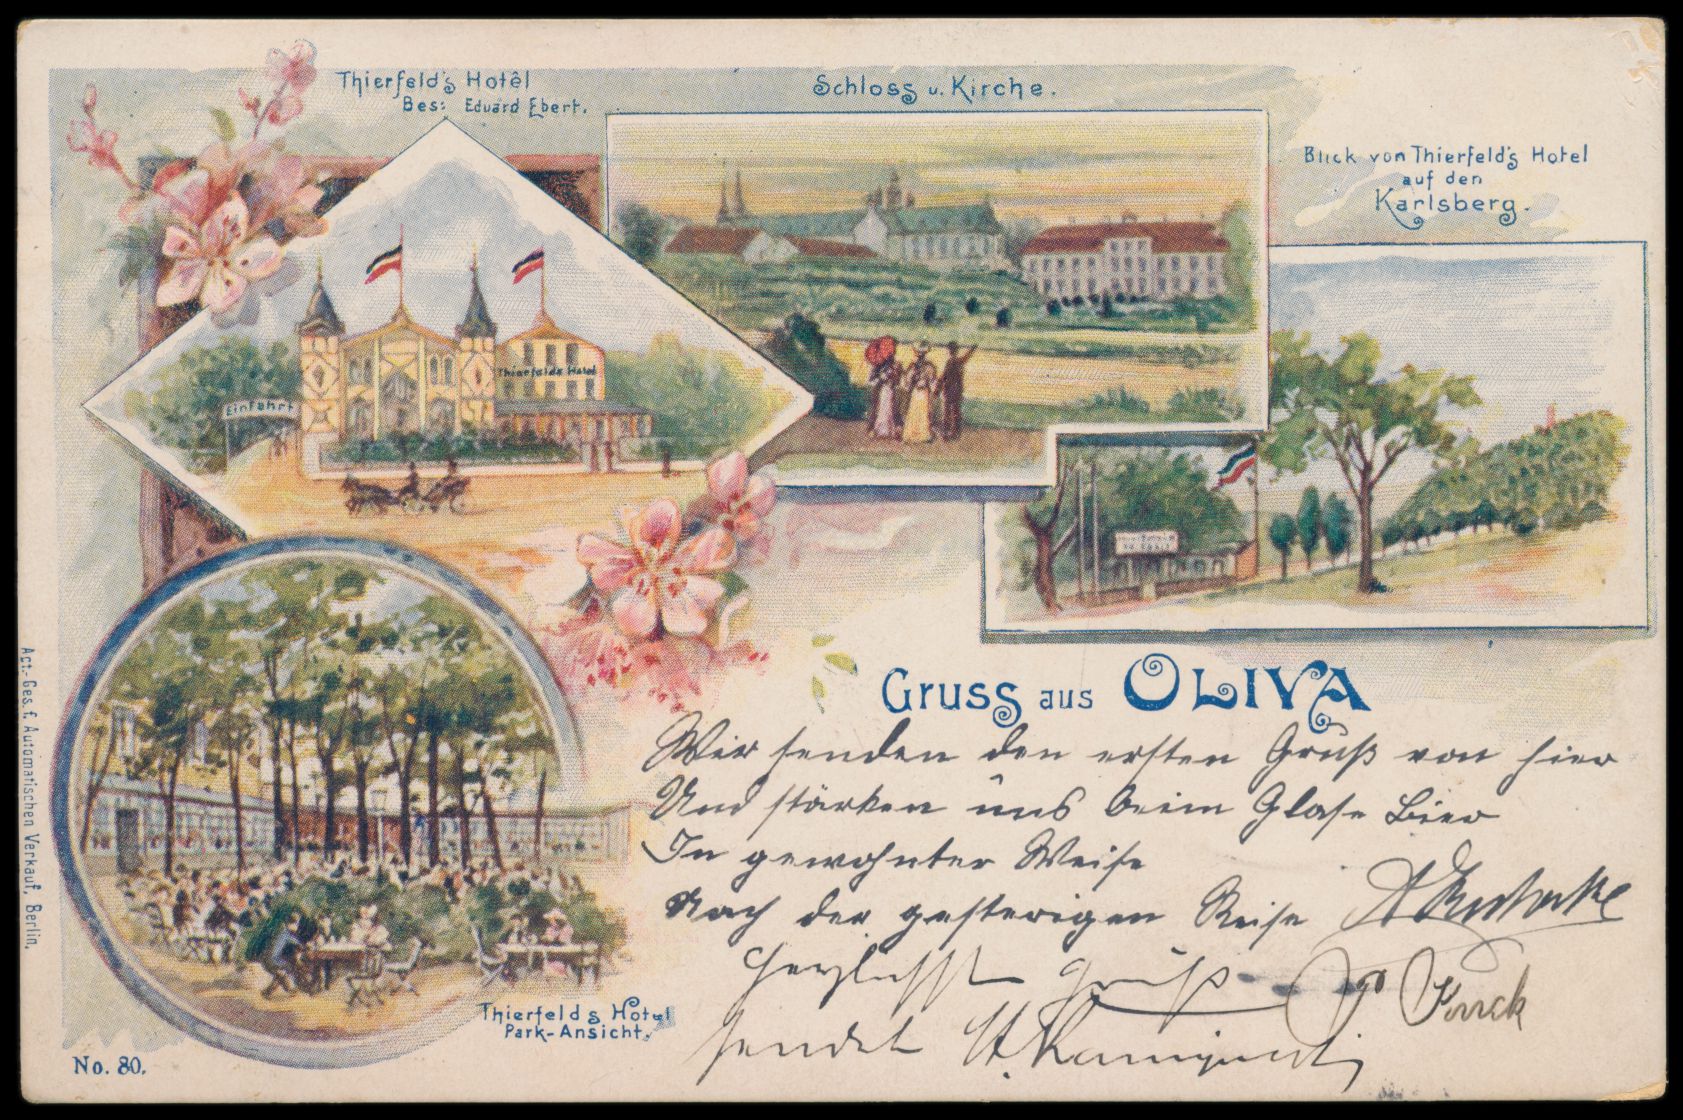 Thierfeld's Hotêl
Bes: Eduard Ebert.
Schloss u. Kirche.
Blick von Thierfeld's Hotel
auf den
Karlsberg.
Einfahrt
Thierfelds Hotel
Gruss aus OLIVA
Wir senden den ersten Gruß von hier
Und stärken uns beim Glase Bier
In gewohnter Weise
Nach der gestrigen Reise
Herzlichst Gruß
sendet
Thierfelds Hotel
Park-Ansicht.
No. 80.
Act.-Ges. f. Automatischen Verkauf, Berlin.